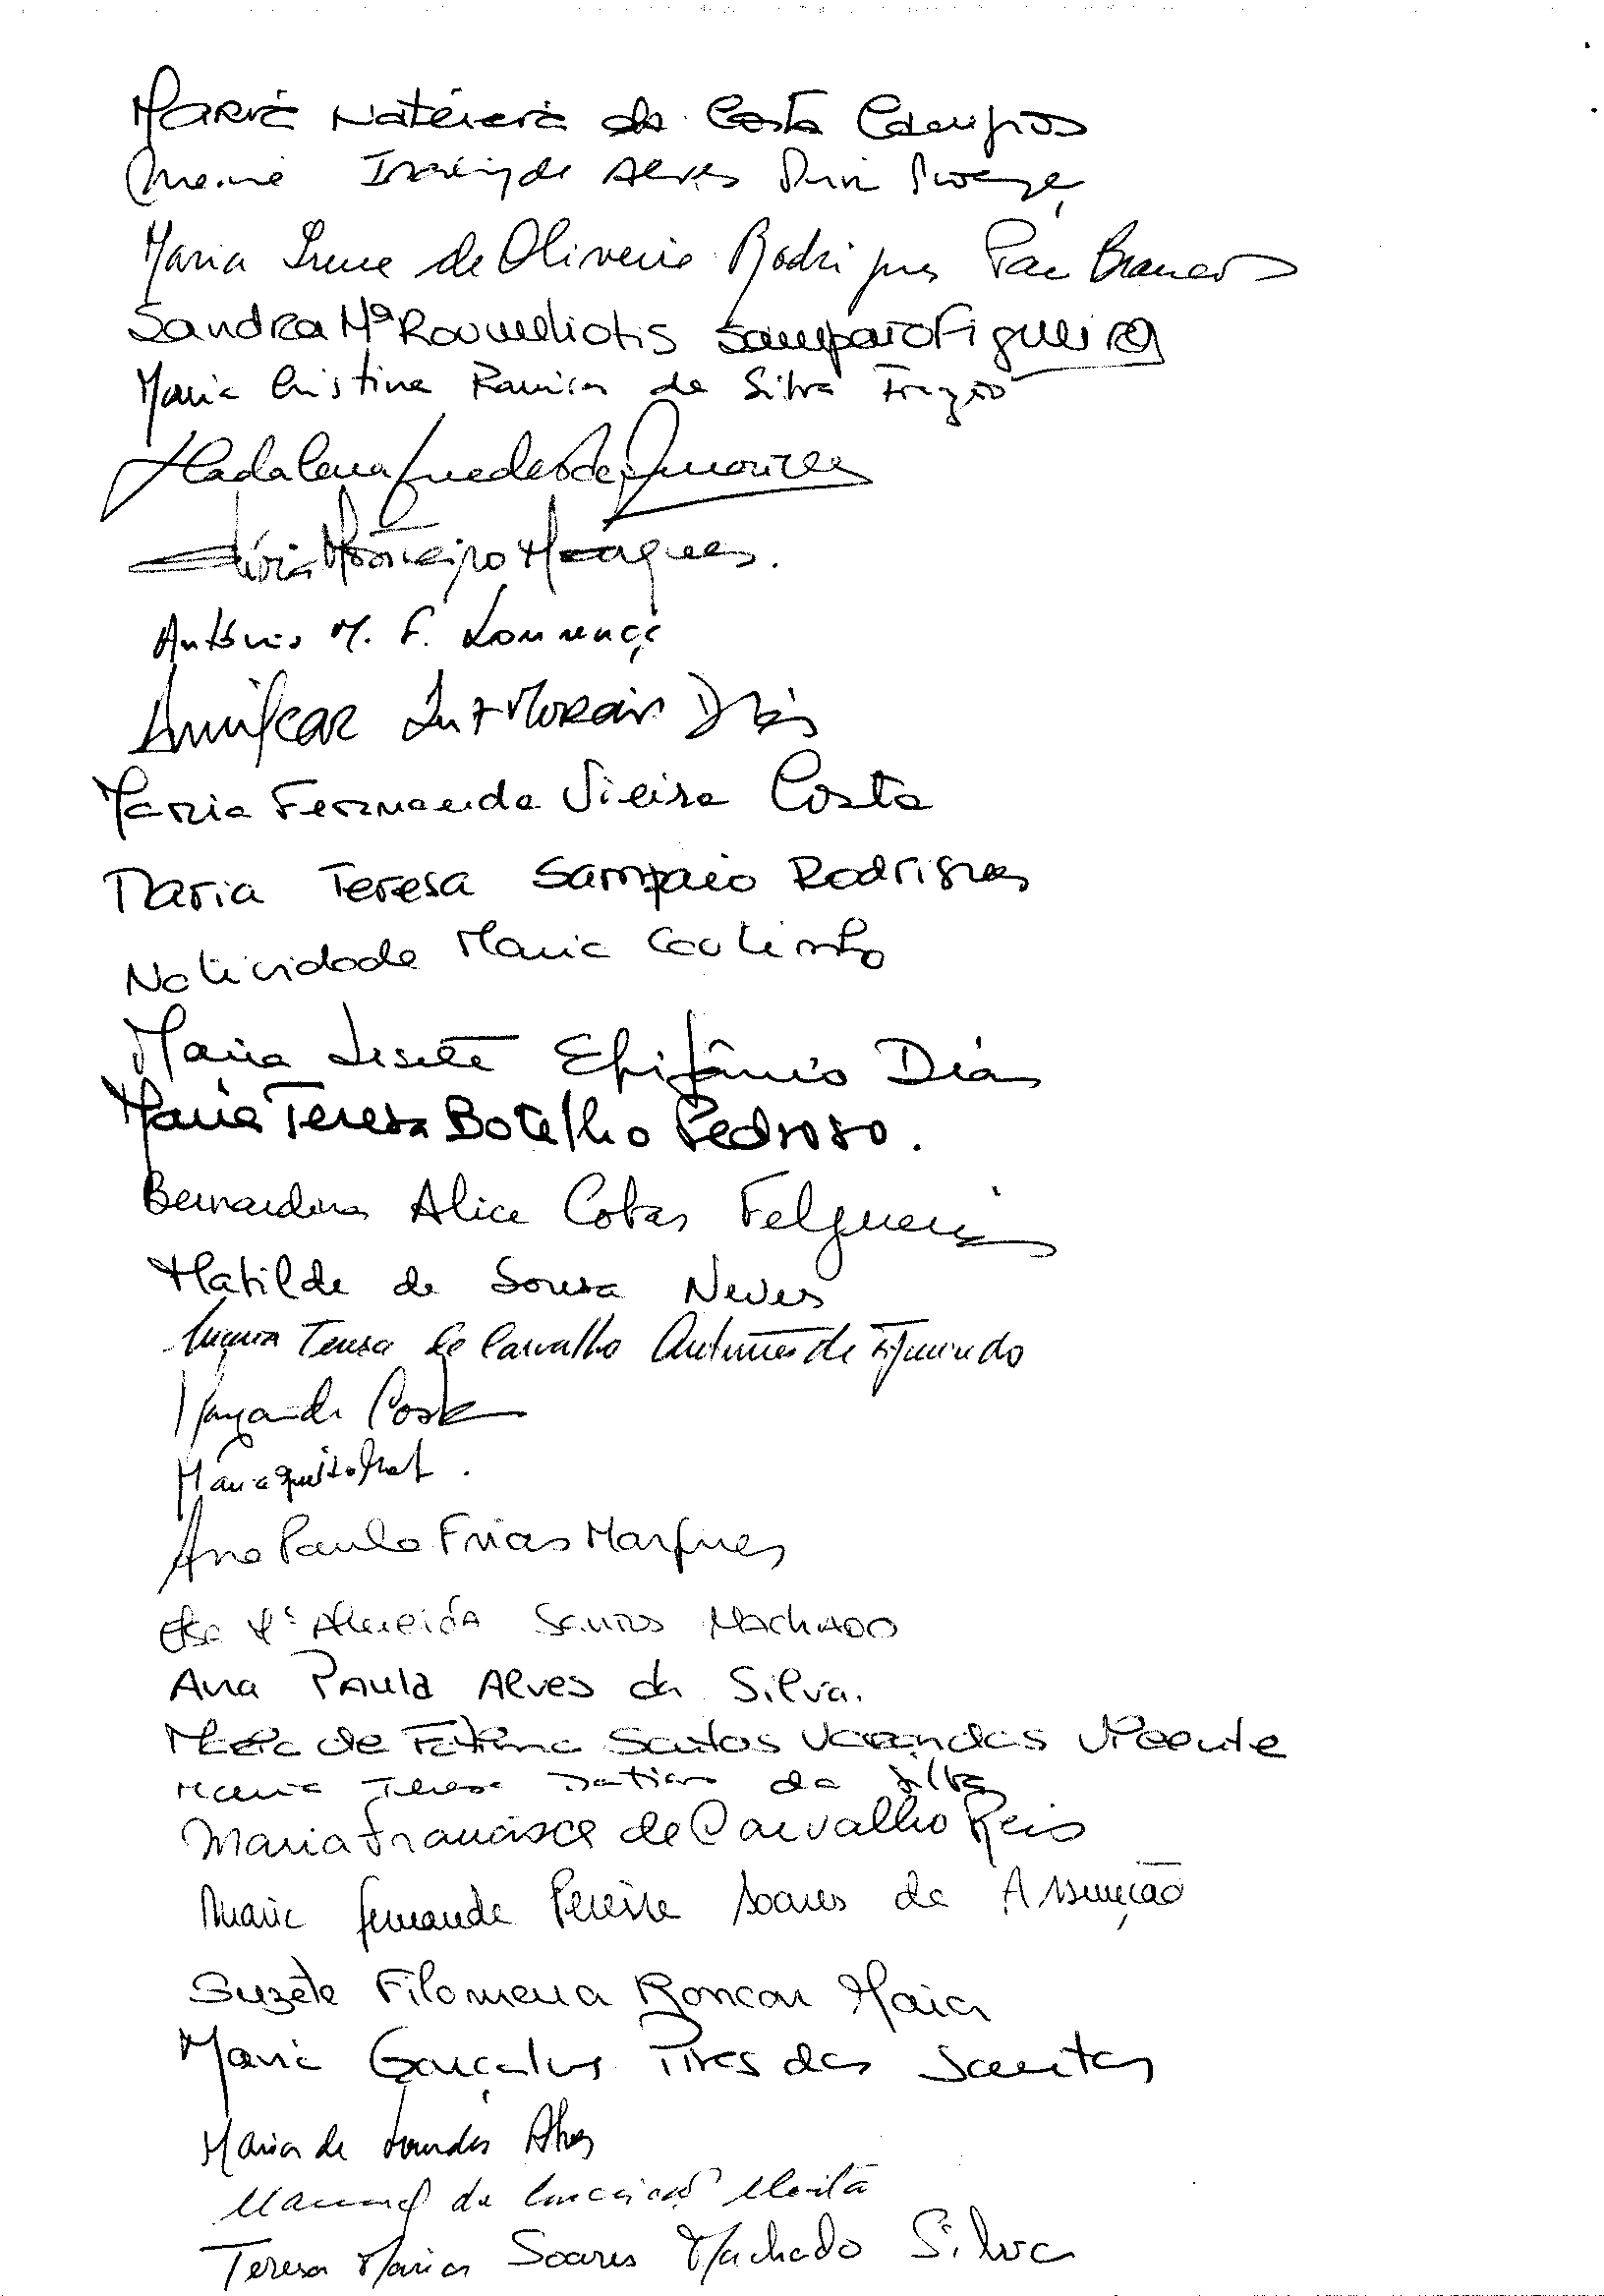 Maria Natércia da Costa Campos
Maria Alves
Maria Irene de Oliveira Rodrigues Pae Branco
Sandra Mª Roumeliotis Sampaio Figueira
Maria Cristina Ramiro da Silva Frazão
Madalena Guedes de
Lívia Monteiro Marques.
António M. F. Lourenço
Amilcar Luz Morais Dias
Maria Fernanda Vieira Costa
Maria Teresa Sampaio Rodrigues
Natividade Maria Coutinho
Maria Lisete Epifânio Dias
Maria Teresa Botelho Pedroso.
Bernardina Alice Cobas Felgueiras
Matilde de Sousa Neves
Teresa de Carvalho Antunes de Figueiredo
Costa
Maria
Ana Paula Frias Marques
Elsa Mª Almeida Santos Machado
Ana Paula Alves da Silva.
Maria de Fátima Santos Varandas Vicente
Maria Teresa da Silva
Maria Francisca de Carvalho Reis
Maria Fernanda Pereira Soares da Assunção
Suzete Filomena Roncon Maia
Maria Gonçalves Pires dos Santos
Maria de Lourdes Alves
Manuel da Conceição
Teresa Maria Soares Machado Silva